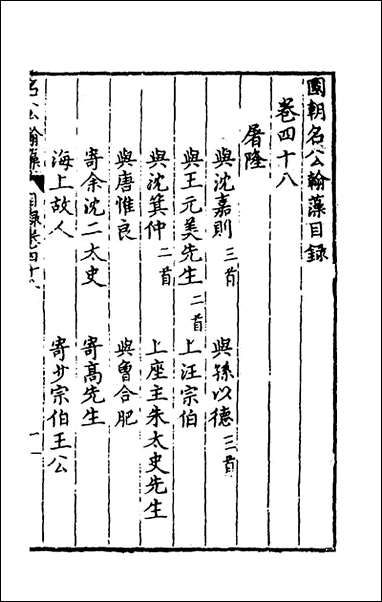 國朝名公翰藻目錄
卷四十八
屠隆
與沈嘉則 三首 與孫以德 三首
與王元美先生 二首 上汪宗伯
與沈箕仲 二首 上座主朱太史先生
與唐惟良 與曾合肥
寄余沈二太史 寄高先生
海上故人 寄少宗伯王公
名公翰藻 目錄卷四十八 一